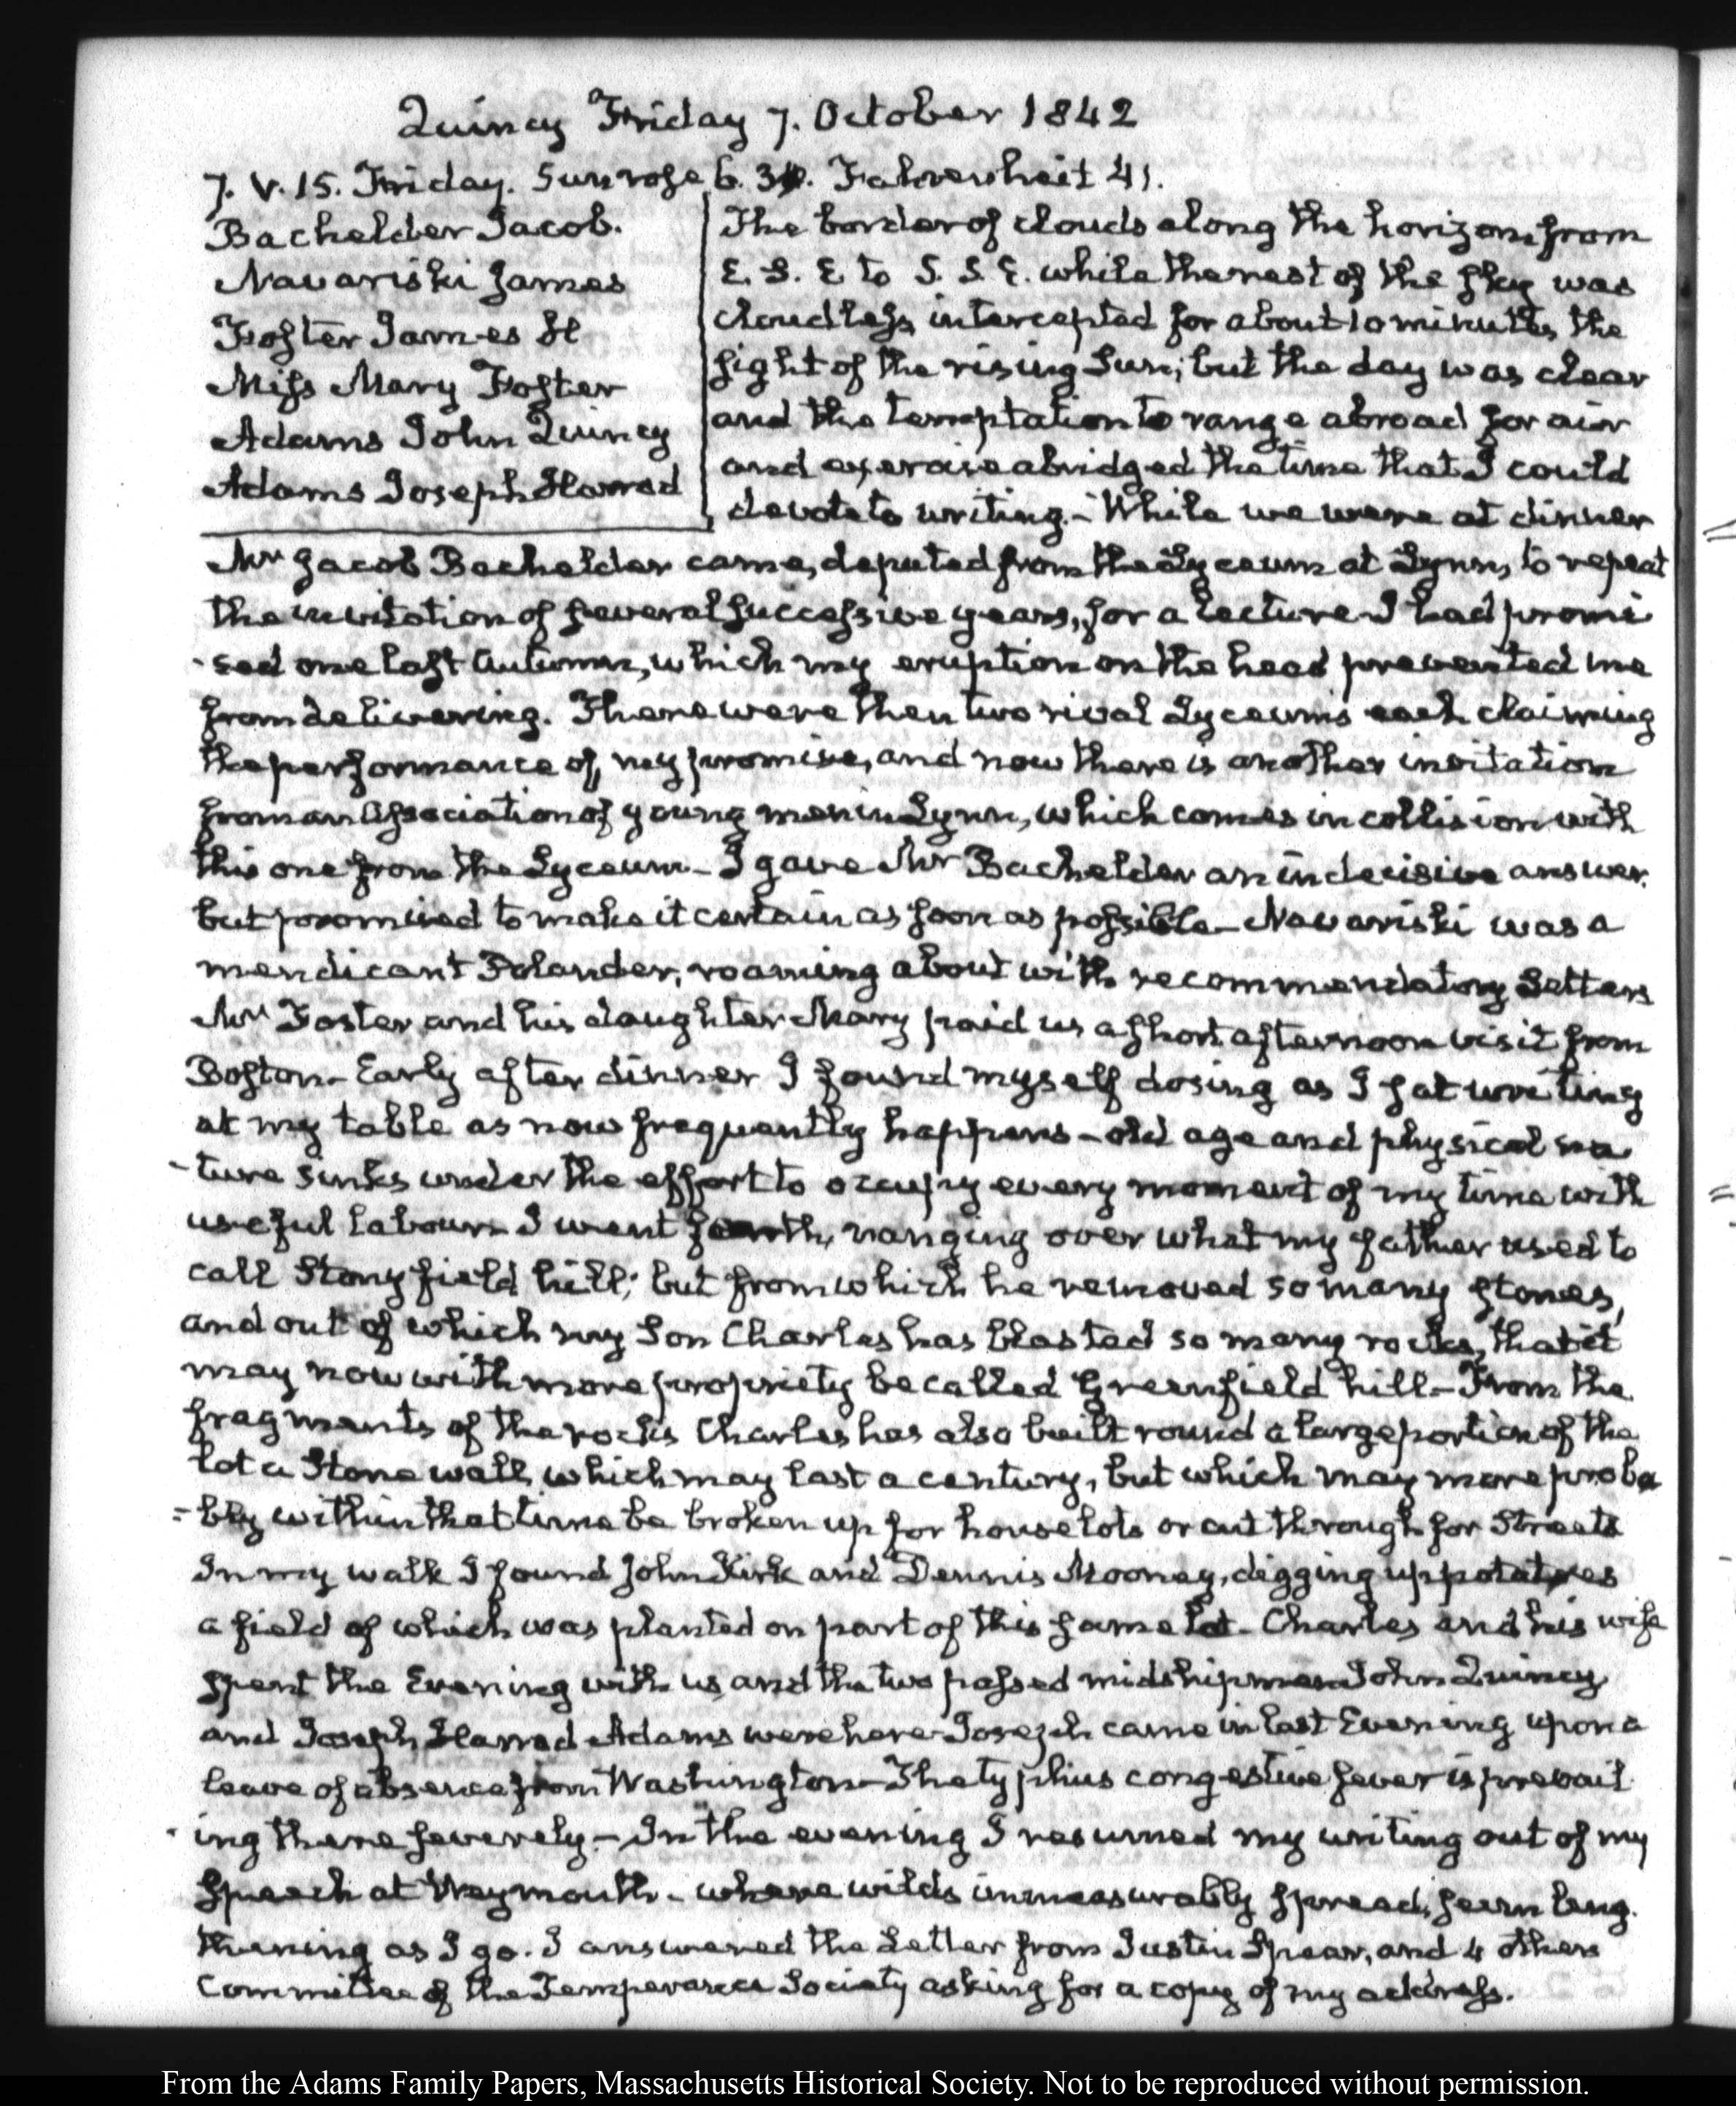 Quincy Friday 7. October 1842
7. V. 15. Friday. Sun rose 6. Fahrenheit 41.
Bachelder Jacob.
Navariski James
Foster James H
Miss Mary Foster
Adams John Quincy
Adams Joseph Harrod
The border of clouds along the horizon from
E. S. E to S. S. E. while the rest of the sky was
cloudless intercepted for about 10 minutes the
sight of the rising Sun; but the day was clear
and the temptation to range abroad for air
and exercise abridged the time that I could
devote to writing.- While we were at dinner
Mr Jacob Bachelder came, deputed from the Lyceum at Lynn, to repeat
the invitation of several successive years, for a Lecture I had promi
-sed one last Autumn, which my eruption on the head prevented me
from delivering. There were then two rival Lyceums each claiming
the performance of my promise, and now there is another invitation
from an Association of young men in Lynn, which comes in collision with
this one from the Lyceum - I gave Mr Bachelder an indecisive answer.
but promised to make it certain as soon as possible - Navariski was a
mendicant Polander, roaming about with recommendatory Letters
Mr Foster and his daughter Mary paid us a short afternoon visit from
Boston - Early after dinner I found myself dosing as I sat writing
at my table as now frequently happens - old age and physical na
-ture sinks under the effort to occupy every moment of my time with
useful labour - I went forth, ranging over what my father used to
call Stonyfield hill; but from which he removed so many stones,
and out of which my Son Charles has blasted so many rocks, that it
may now with more propriety be called Greenfield hill - From the
fragments of the rocks Charles has also built round a large portion of the
lot a Stone wall, which may last a century, but which may more proba
=bly within that time be broken up for house lots or cut through for Streets
In my walk I found John Kirk and Dennis Mooney, digging up potatoes
a field of which was planted on part of this same lot - Charles and his wife
spent the Evening with us, and the two passed midshipmen John Quincy
and Joseph Harrod Adams were here - Joseph came in last Evening upon a
leave of absence from Washington - The typhus congestive fever is prevail
-ing there severely - In the evening I resumed my writing out of my
Speech at Weymouth - where wilds immeasurably spread, seem leng.
thening as I go. I answered the Letter from Justin Spear, and 4 others
Committee of the Temperance Society asking for a copy of my address.
From the Adams Family Papers, Massachusetts Historical Society. Not to be reproduced without permission.